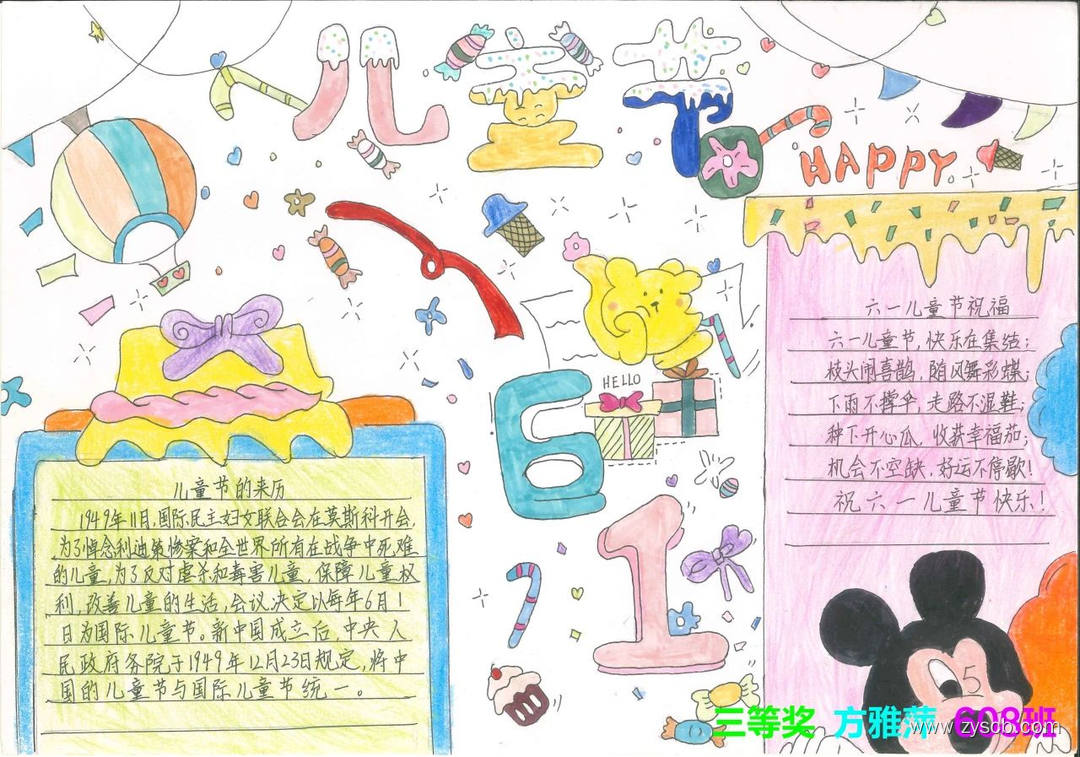 儿童节
HAPPY
HELLO
61
儿童节的来历
1949年11月,国际民主妇女联合会在莫斯科开会,
为了悼念利迪策惨案和全世界所有在战争中死难
的儿童,为了反对虐杀和毒害儿童,保障儿童权
利,改善儿童的生活,会议决定以每年6月1
日为国际儿童节。新中国成立后,中央人
民政府务院于1949年12月23日规定,将中
国的儿童节与国际儿童节统一。
六一儿童节祝福
六一儿童节,快乐在集结;
枝头闹喜鹊,随风舞彩蝶;
下雨不撑伞,走路不湿鞋;
种下开心瓜,收获幸福茄;
机会不空缺,好运不停歇!
祝六一儿童节快乐!
三等奖 方雅萍 608班
www.zyscb.com